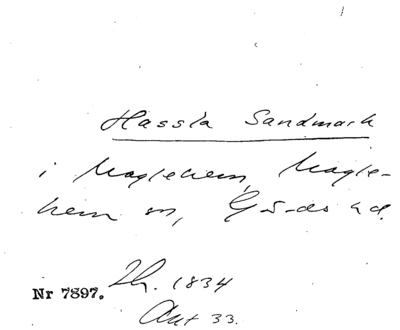 Hassla Sandmark
i Maglehem, Magle-
hem sn, G-s-ds hd.
Nr 7897. Th. 1834
Akt 33.